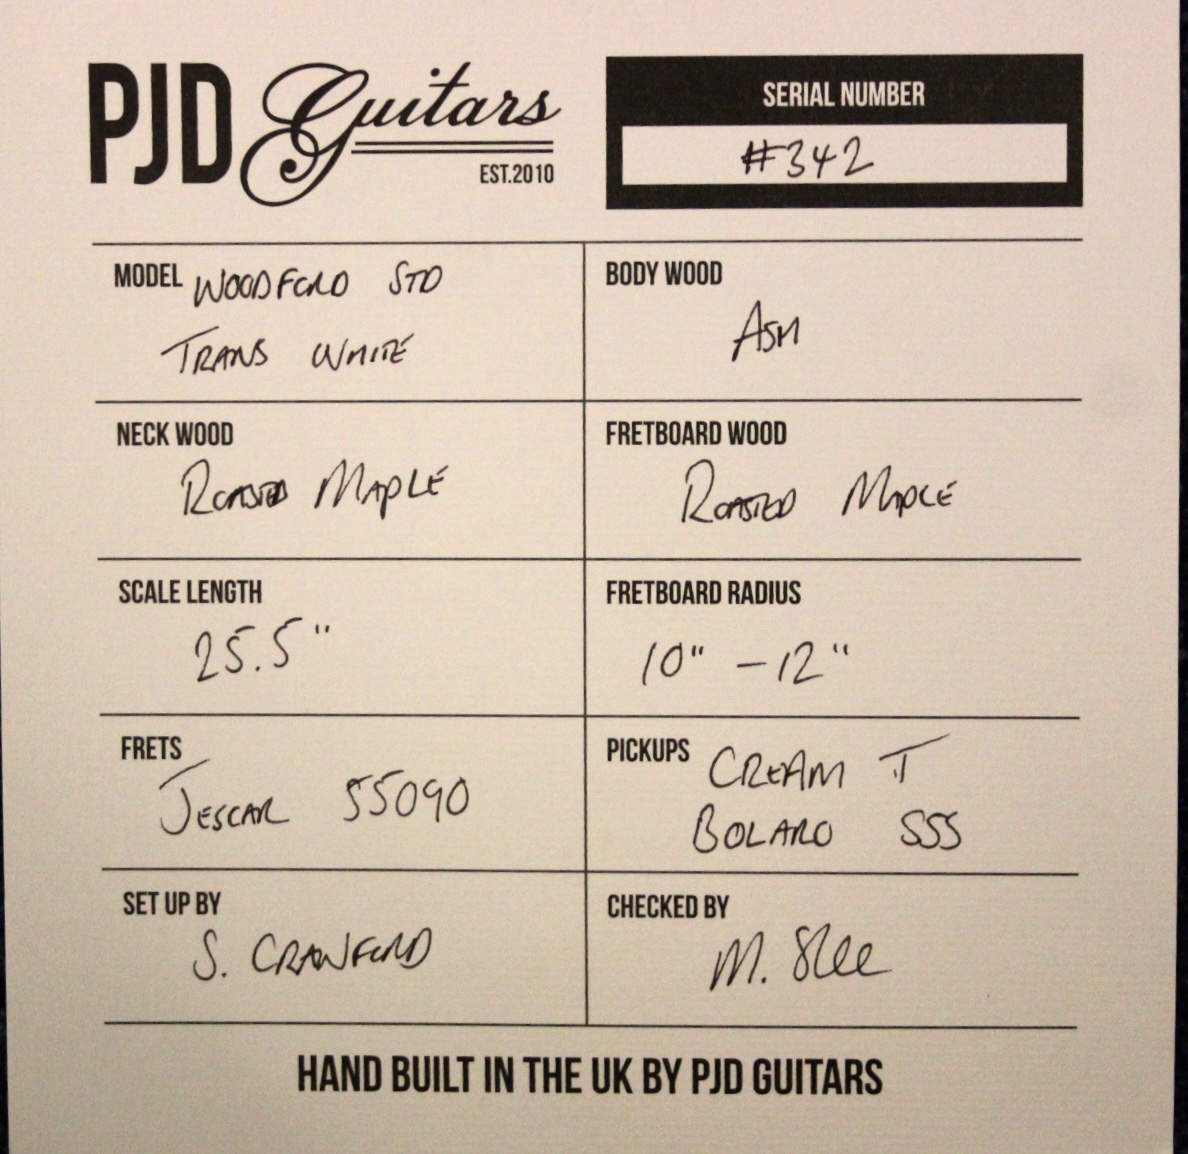 PJD Guitars
EST.2010
SERIAL NUMBER
#342
MODEL WOODFORD STD
TRANS WHITE
BODY WOOD
ASH
NECK WOOD
ROASTED MAPLE
FRETBOARD WOOD
ROASTED MAPLE
SCALE LENGTH
25.5"
FRETBOARD RADIUS
10" - 12"
FRETS
JESCAR 55090
PICKUPS CREAM T
BOLARO SSS
SET UP BY
S. CRAWFORD
CHECKED BY
M. Slee
HAND BUILT IN THE UK BY PJD GUITARS